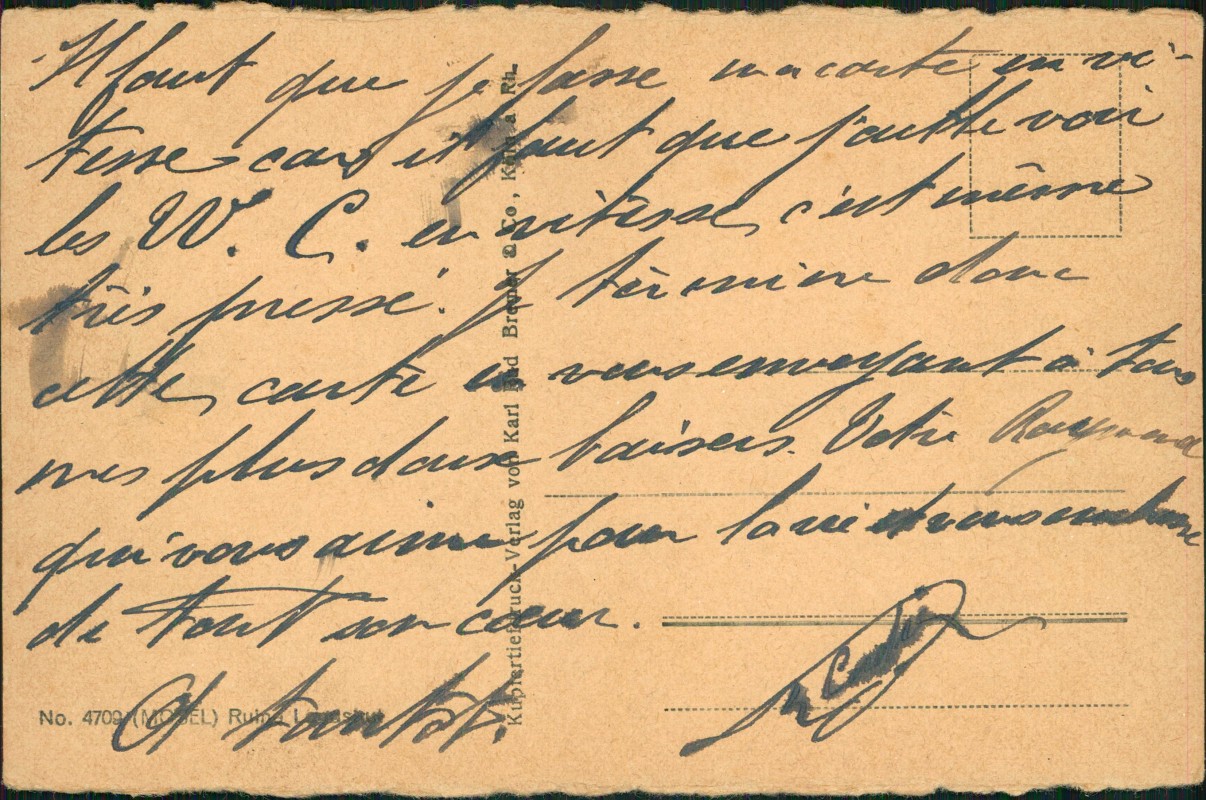 Il faut que je fasse ma carte en vi-
tesse car il faut que j'aille voir
les W. C. en vitesse, c'est même
très pressé. Je termine donc
cette carte en vous envoyant à tous
mes plus doux baisers. Votre Raymond
qui vous aime pour la vie et vous embrasse
de tout son cœur.
A tantôt.
No. 4709 (MOSEL) Ruine Landshut
Kupfertiefdruck-Verlag von Karl Rud Bremer & Co, Köln a. Rh.